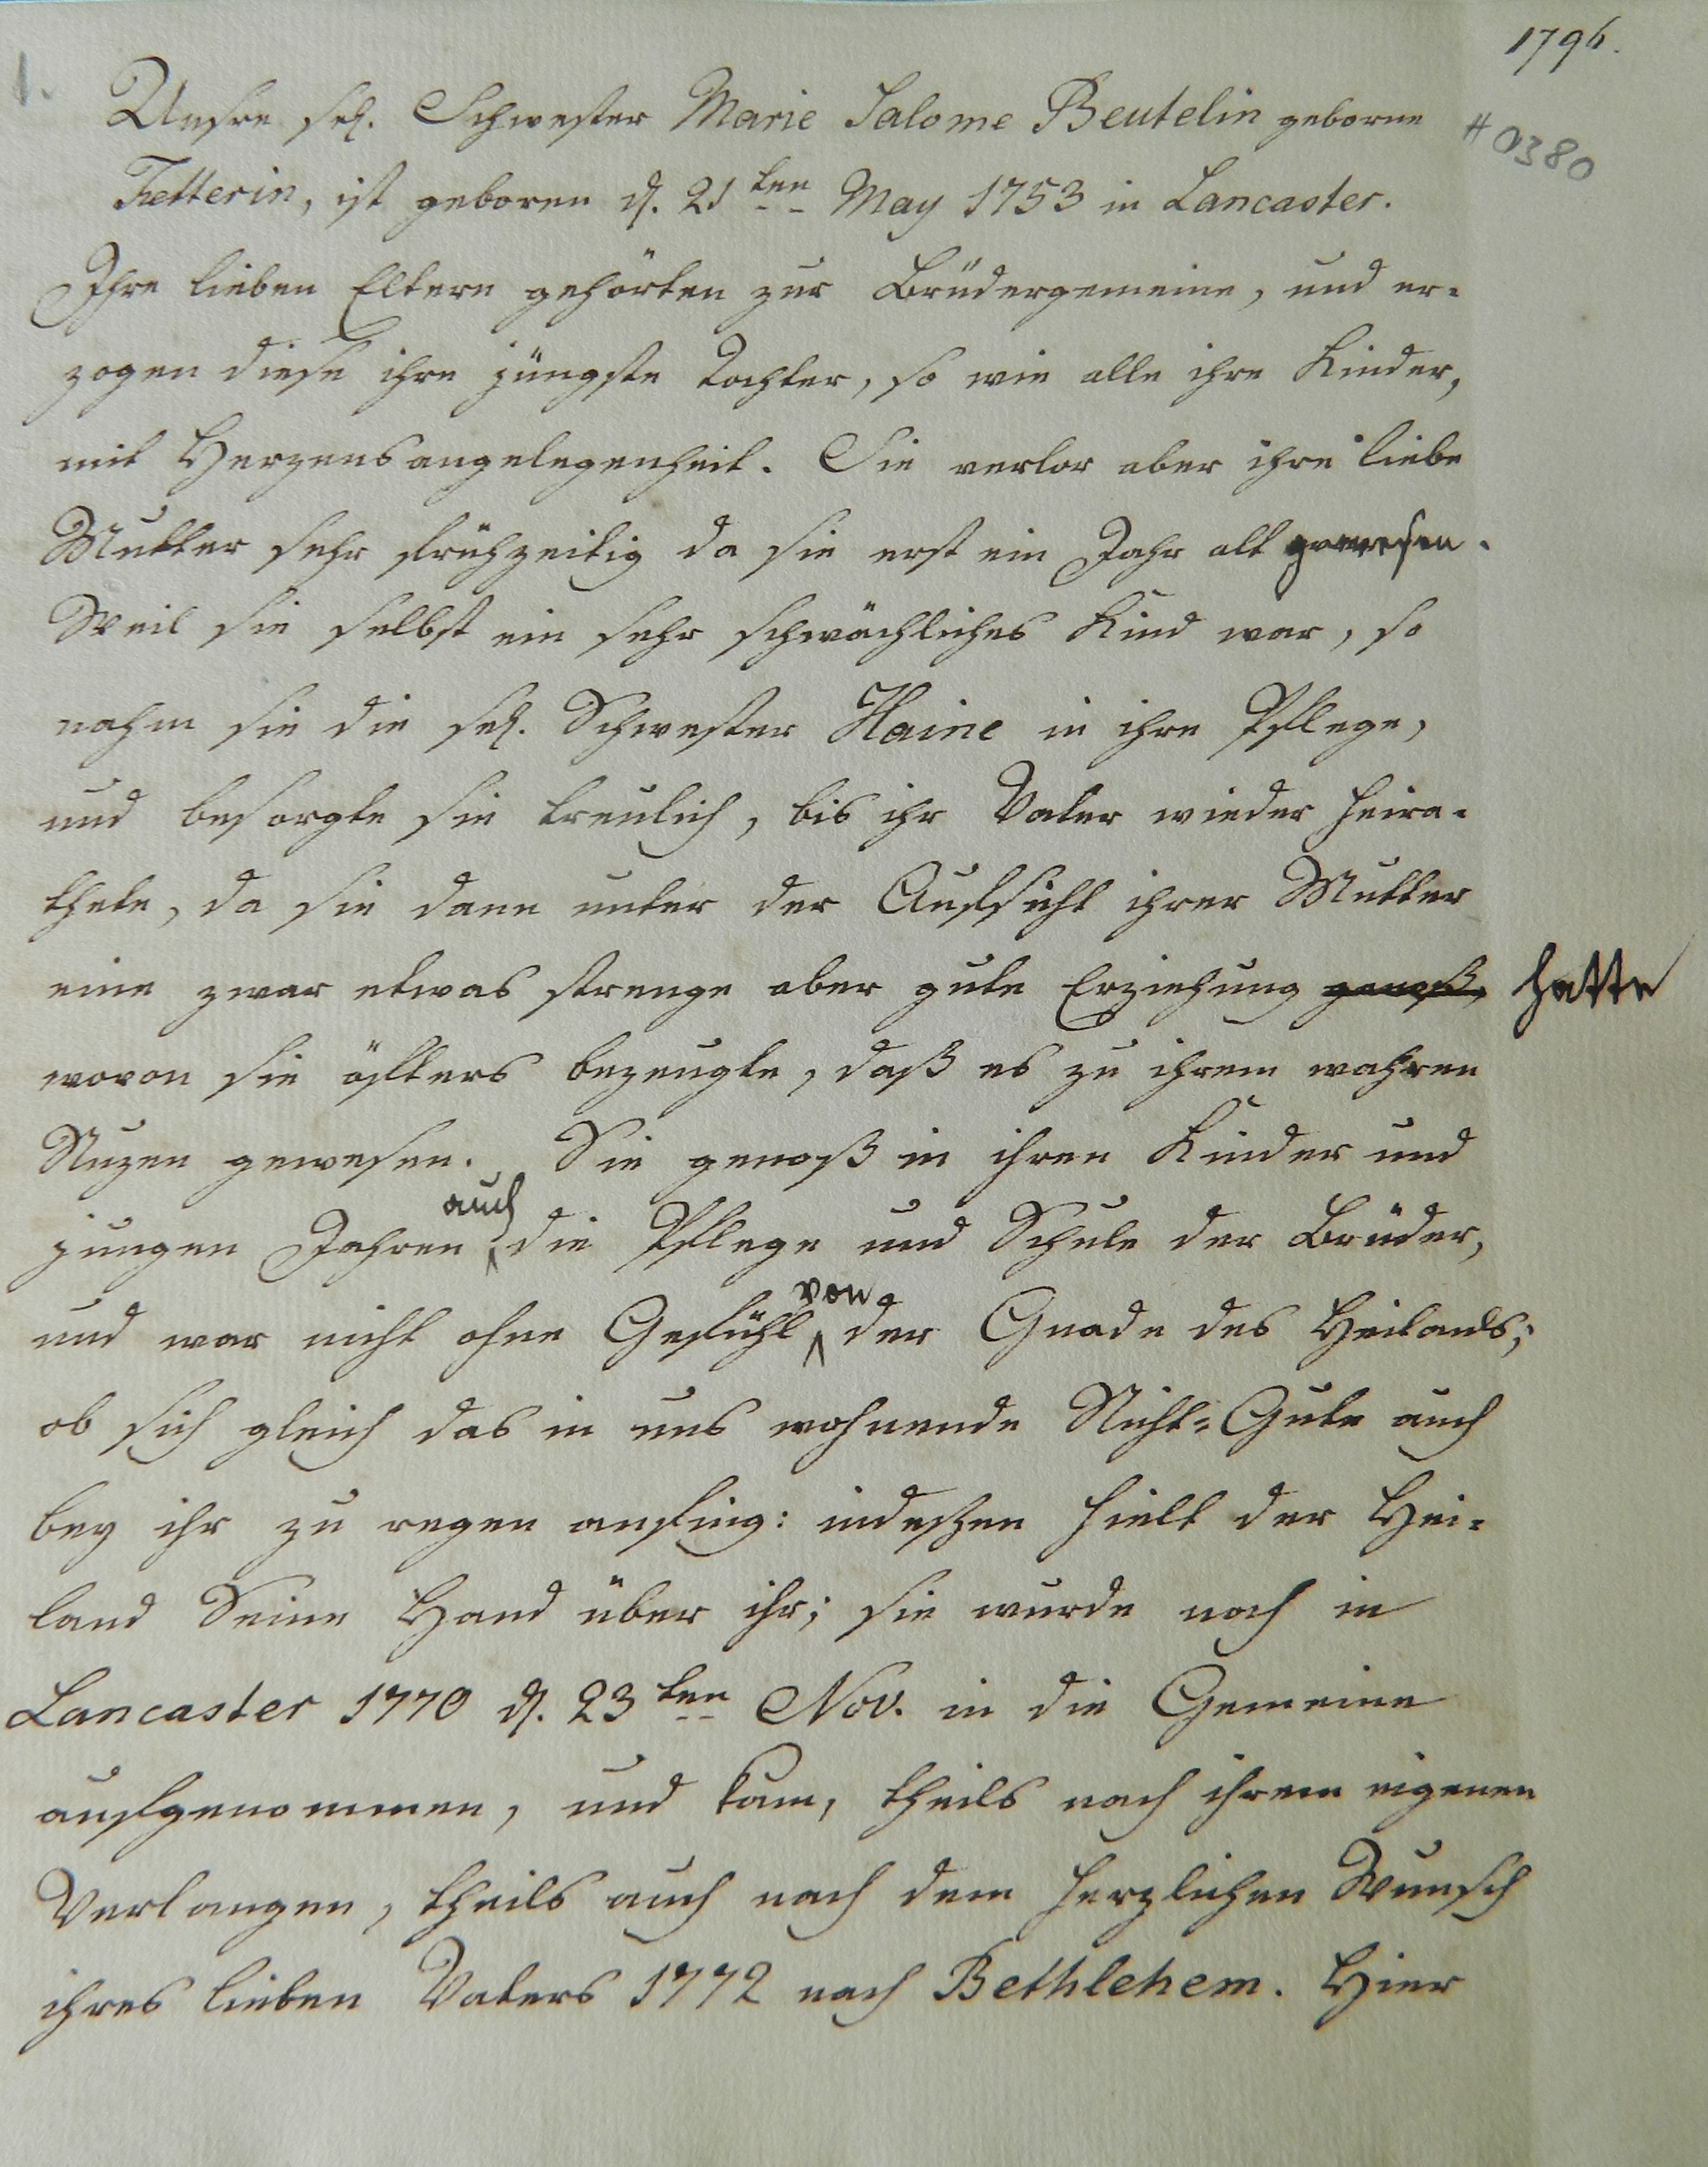 1796.
1.
#0380
Unsre sel. Schwester Marie Salome Beutelin geborne
Fetterin, ist geboren d. 21ten May 1753 in Lancaster.
Ihre lieben Eltern gehörten zur Brüdergemeine, und er-
zogen diese ihre jüngste Tochter, so wie alle ihre Kinder,
mit Herzensangelegenheit. Sie verlor aber ihre liebe
Mutter sehr frühzeitig da sie erst ein Jahr alt gewesen.
Weil sie selbst ein sehr schwächliches Kind war, so
nahm sie die sel. Schwester Haine in ihre Pflege,
und besorgte sie treulich, bis ihr Vater wieder heira-
thete, da sie dann unter der Aufsicht ihrer Mutter
eine zwar etwas strenge aber gute Erziehung genoß, hatte
wovon sie öfters bezeugte, daß es zu ihrem wahren
Nuzen gewesen. Sie genoß in ihren Kinder und
jungen Jahren auch die Pflege und Schule der Brüder,
und war nicht ohne Gefühl von der Gnade des Heilands;
ob sich gleich das in uns wohnende Nicht-Gute auch
bey ihr zu regen anfing: indeßen hielt der Hei-
land Seine Hand über ihr; sie wurde noch in
Lancaster 1770 d. 23ten Nov. in die Gemeine
aufgenommen, und kam, theils nach ihrem eigenen
Verlangen, theils auch nach dem herzlichen Wunsch
ihres lieben Vaters 1772 nach Bethlehem. Hier